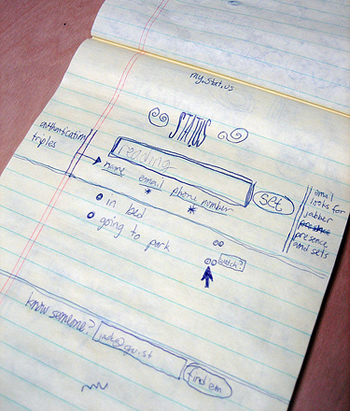 my.stat.us
STATUS
authentication
triples
reading
name email phone number
set
gmail
looks for
jabber
presence
and sets
in bed
going to park
watch?
know someone?
find em